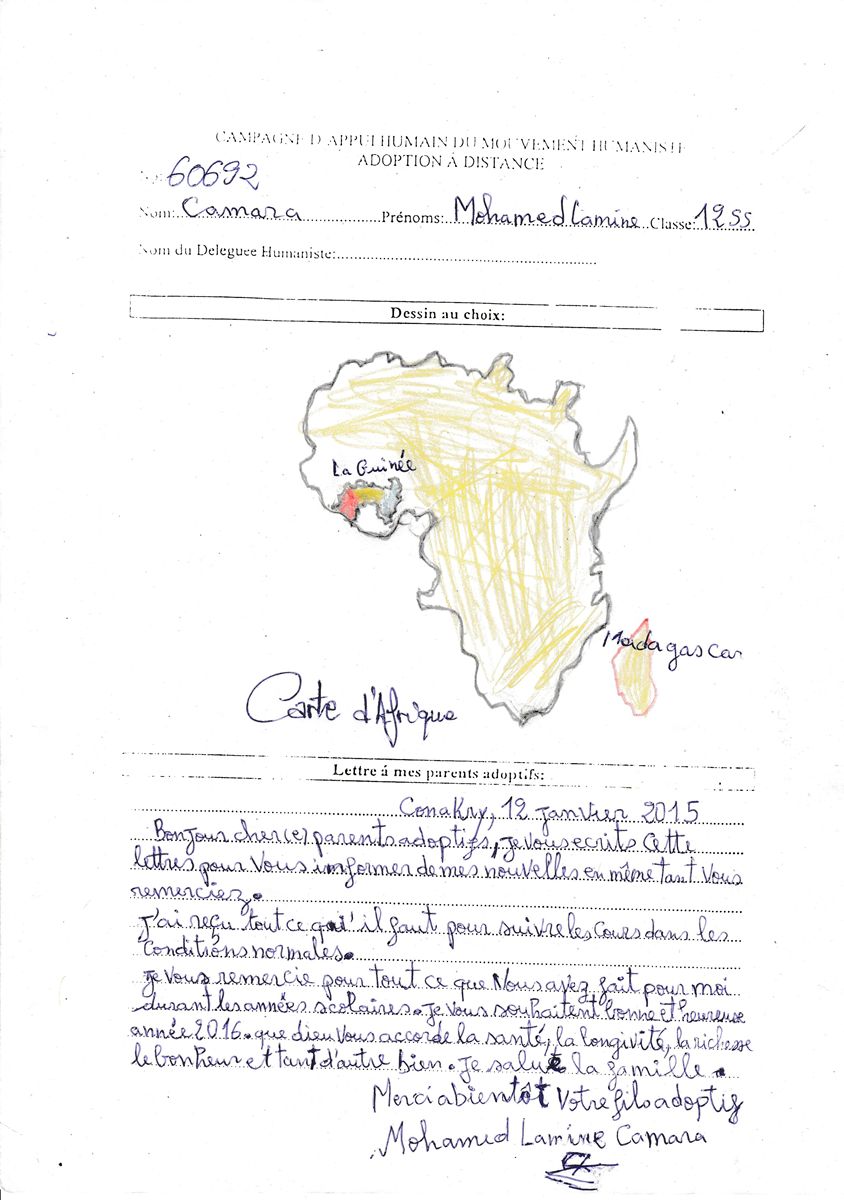 CAMPAGNE D'APPUI HUMAIN DU MOUVEMENT HUMANISTE
ADOPTION À DISTANCE
60692
Nom: Camara Prénoms: Mohamed Lamine Classe: 12 SS
Nom du Deleguee Humaniste:
Dessin au choix:
La Guinée
Madagascar
Carte d'Afrique
Lettre á mes parents adoptifs:
Conakry, 12 janvier 2015
Bonjour cher(e) parents adoptifs, je vous ecrits cette
lettres pour vous informer de mes nouvelles en même tant vous
remerciez.
J'ai reçu tout ce qui' il faut pour suivre les cours dans les
conditions normales.
je vous remercie pour tout ce que Vous avez fait pour moi
durant les années scolaires. je vous souhaitent bonne et heureuse
année 2016. que dieu vous accorde la santé, la longivité, la richesse
le bonheur et tant d'autre bien. je salue la famille.
Merci a bientôt Votre fils adoptif
Mohamed Lamine Camara